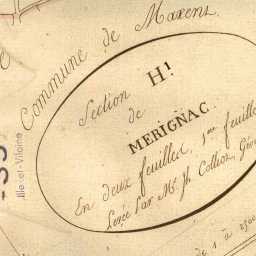 Commune de Maxent
Section H¹
de
MERIGNAC
En deux feuilles, 1ère feuille
Levée Par Mr. Jh Collioz, Géo
de 1 à 2500
Ille-et-Vilaine